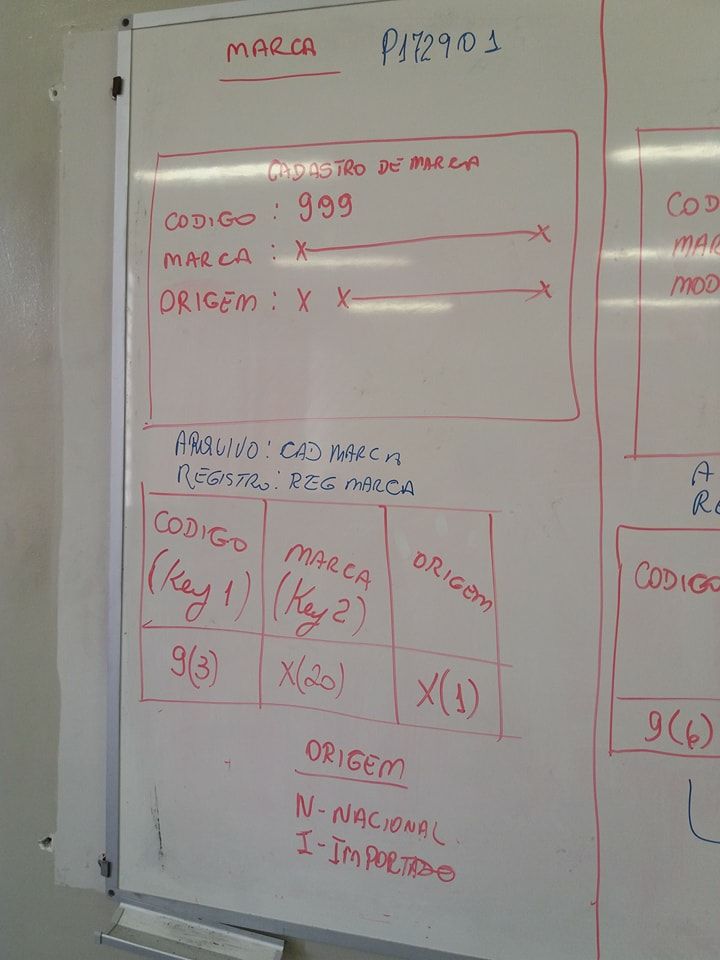 MARCA P1729D1
CADASTRO DE MARCA
CODIGO : 999
MARCA : X X
ORIGEM : X X X
ARQUIVO: CADMARCA
REGISTRO: REGMARCA
CODIGO (Key 1)
MARCA (Key 2)
ORIGEM
9(3) X(20) X(1)
ORIGEM
N-NACIONAL
I-IMPORTADO
COD
MAR
MOD
A
RE
CODIGO
9(6)